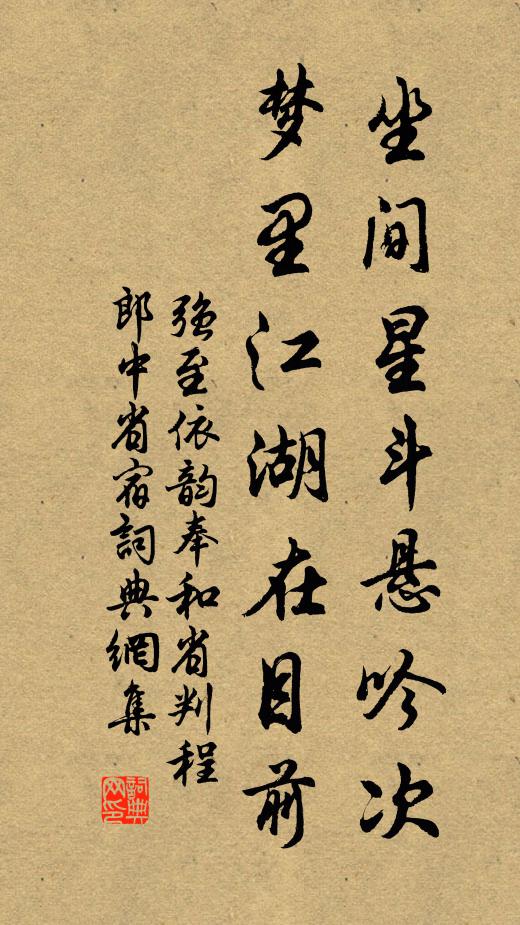 坐间星斗悬吟次
梦里江湖在目前
強至依韵奉和省判程
郎中省宿詞典網集
詞典网印